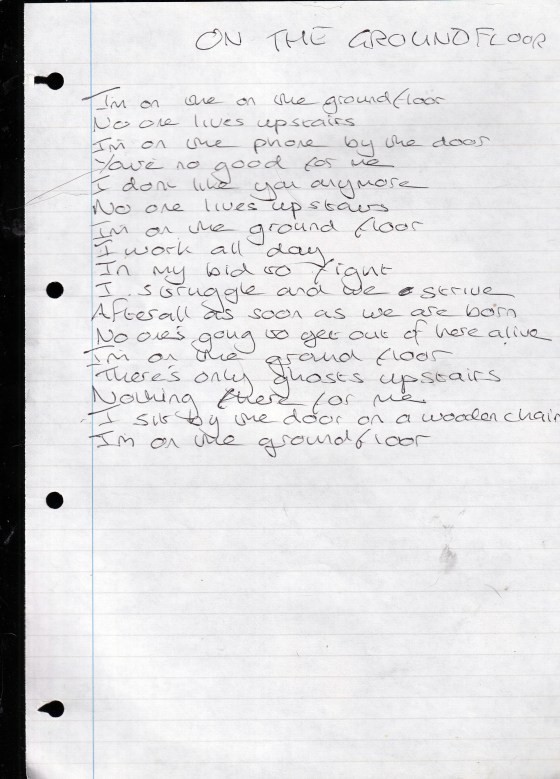 ON THE GROUNDFLOOR
Im on the on the groundfloor
No one lives upstairs
I'm on the phone by the door
You're no good for me
I dont like you anymore
No one lives upstairs
I'm on the ground floor
I work all day
In my bid to fight
I struggle and we strive
Afterall as soon as we are born
No one's going to get out of here alive
I'm on the ground floor
There's only ghosts upstairs
Nothing there for me
I sit by the door on a wooden chair
I'm on the groundfloor